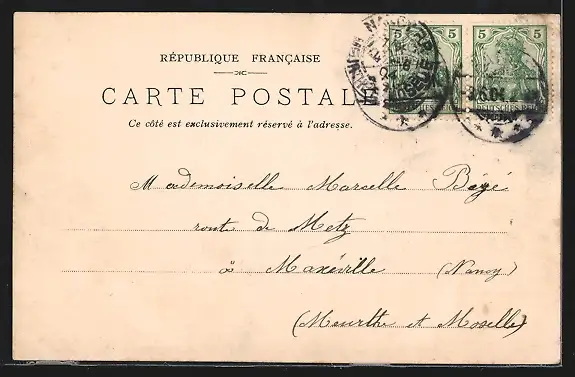 RÉPUBLIQUE FRANÇAISE
CARTE POSTALE
Ce côté est exclusivement réservé à l'adresse.
5 5
5 5
DEUTSCHES REICH
Mademoiselle Marselle Bégé
route de Metz
à Maxéville (Nancy)
(Meurthe et Moselle)